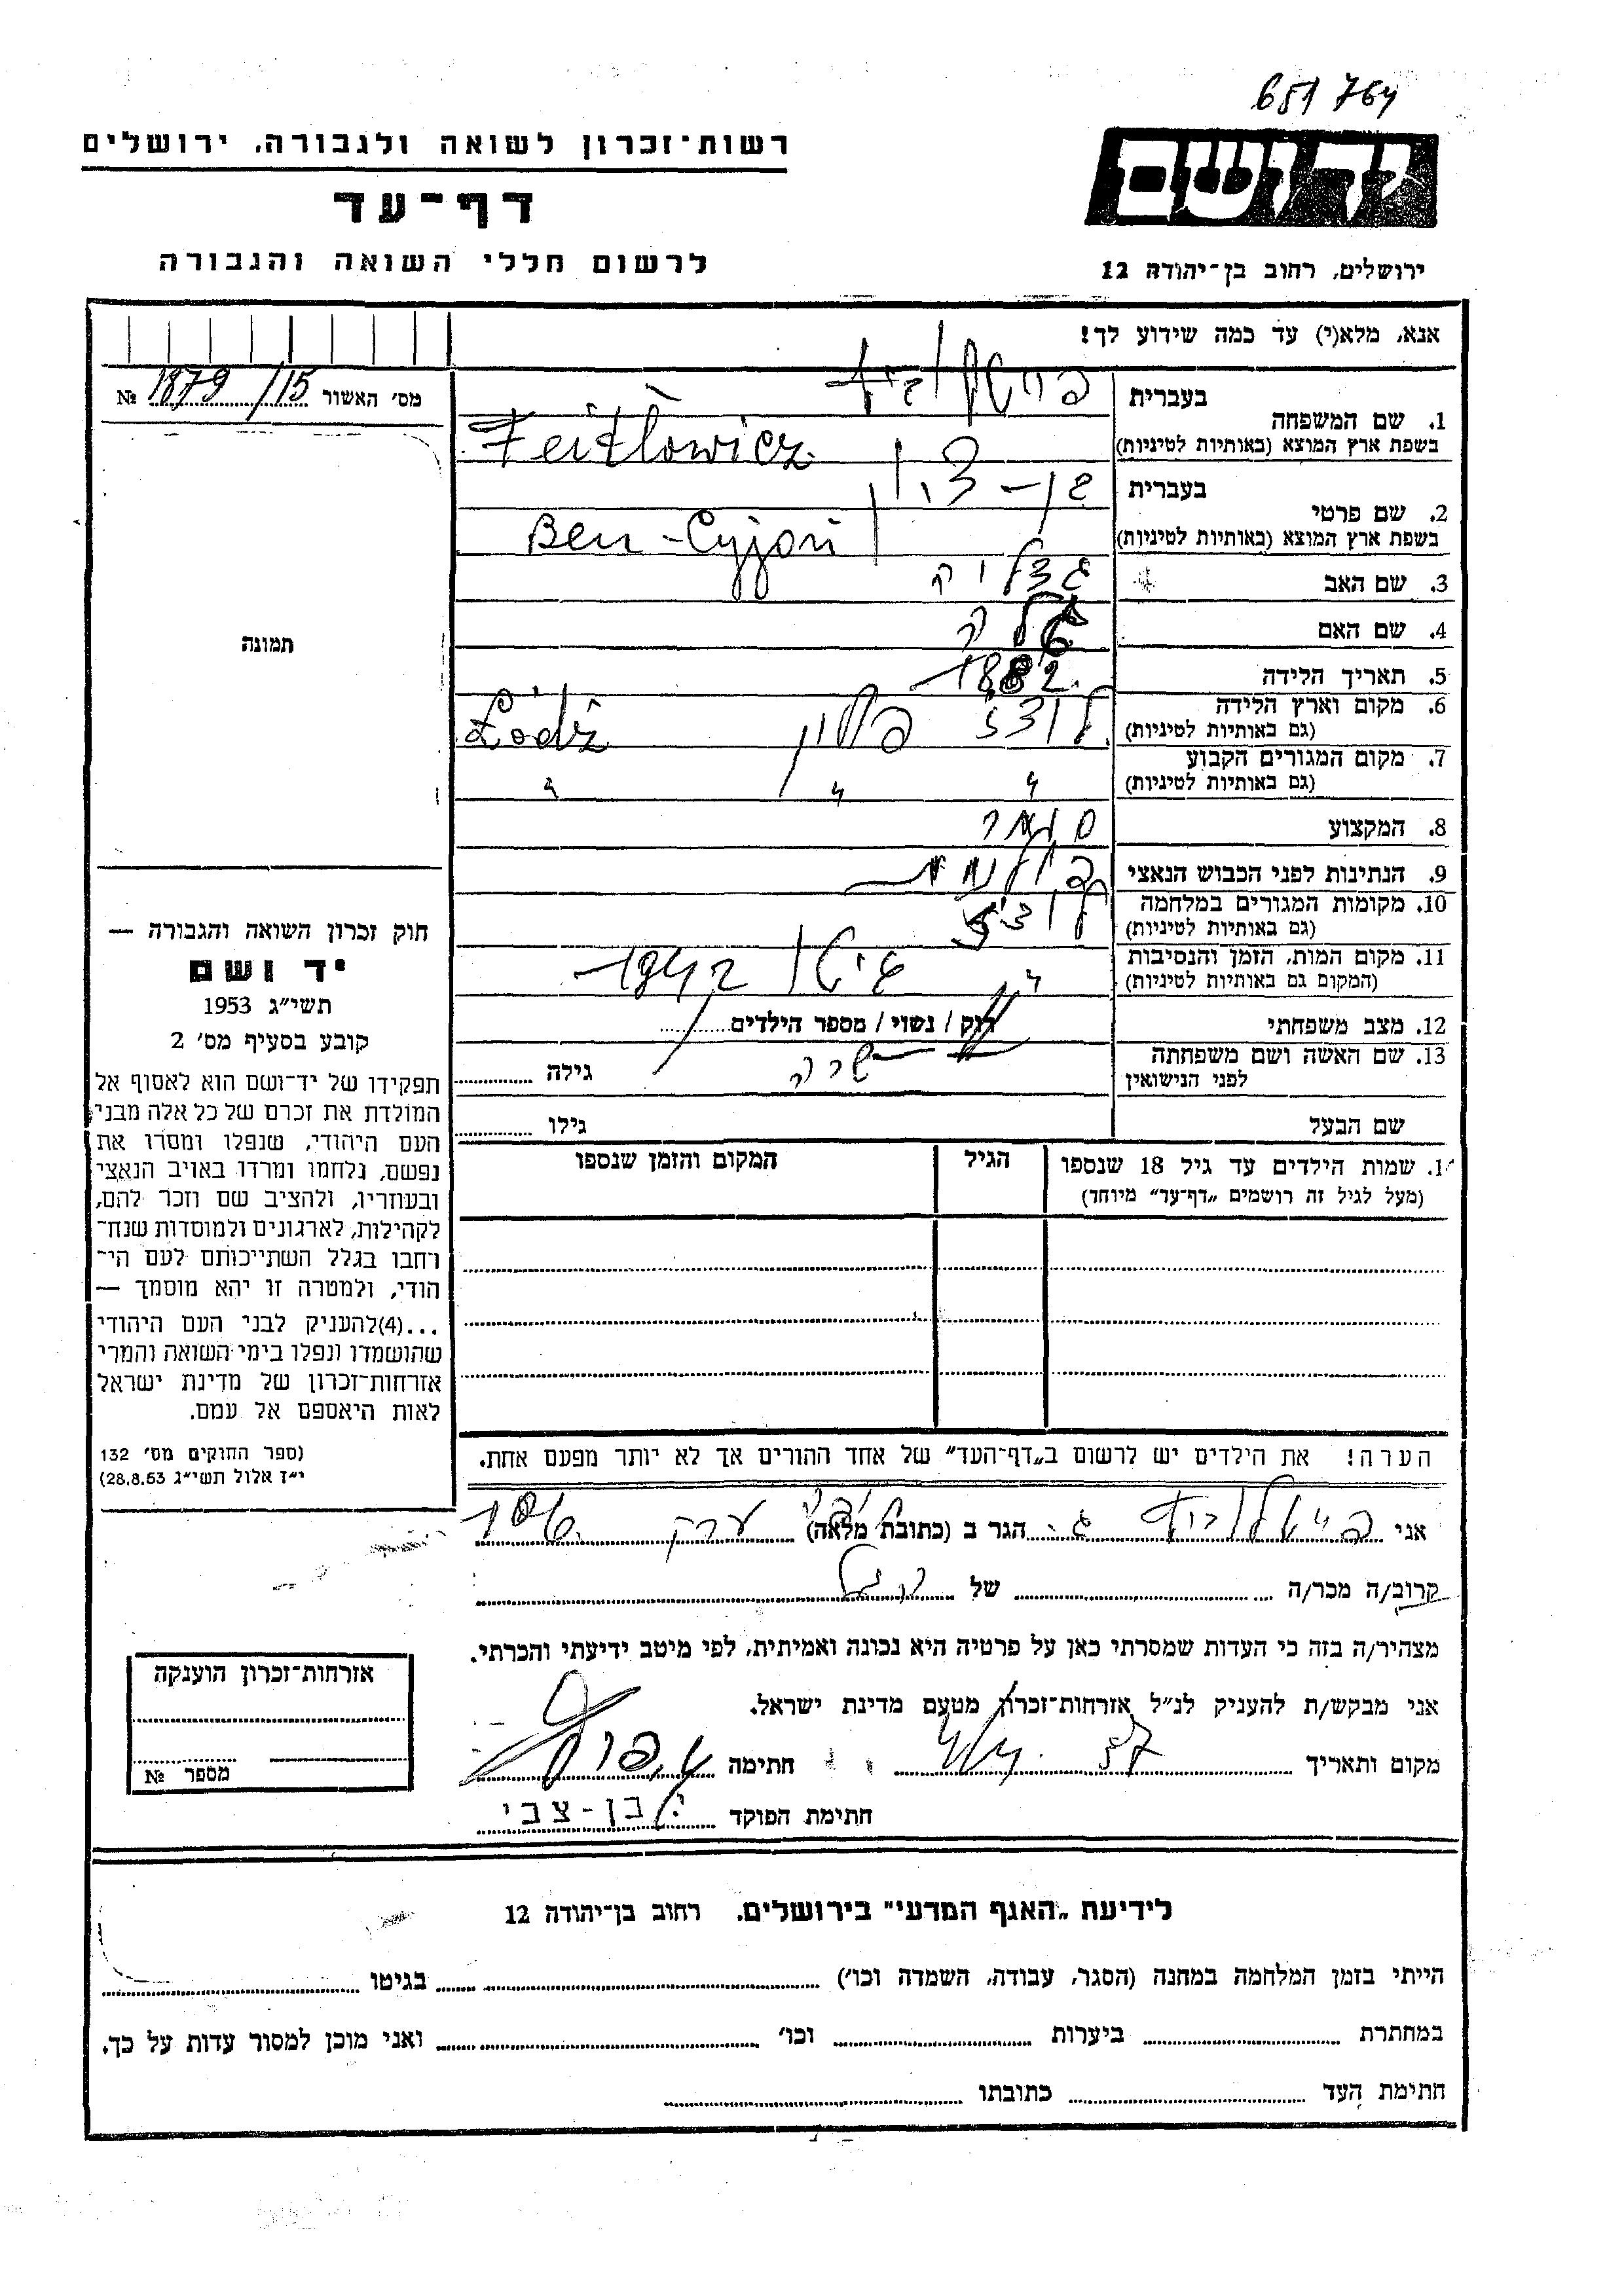 651764
רשות־זכרון לשואה ולגבורה, ירושלים
יד ושם
דף־עד
לרשום חללי השואה והגבורה
ירושלים, רחוב בן־יהודה 12
אנא, מלא(י) עד כמה שידוע לך!
מס׳ האשור 1879/15 №
1. שם המשפחה בעברית
בשפת ארץ המוצא (באותיות לטיניות) Feitlowicz
2. שם פרטי בעברית בן־ציון
בשפת ארץ המוצא (באותיות לטיניות) Ben-Cyjon
3. שם האב
4. שם האם
5. תאריך הלידה 1882
6. מקום וארץ הלידה לודז׳ פולין Łódż
(גם באותיות לטיניות)
7. מקום המגורים הקבוע 〃 〃 〃
(גם באותיות לטיניות)
8. המקצוע סוחר
9. הנתינות לפני הכבוש הנאצי
10. מקומות המגורים במלחמה לודז׳
(גם באותיות לטיניות)
11. מקום המות, הזמן והנסיבות גיטו 1942
(המקום גם באותיות לטיניות)
12. מצב משפחתי רוק / נשוי / מספר הילדים
13. שם האשה ושם משפחתה שרה גילה
לפני הנישואין
שם הבעל גילו
14. שמות הילדים עד גיל 18 שנספו הגיל המקום והזמן שנספו
(מעל לגיל זה רושמים „דף־עד״ מיוחד)
תמונה
חוק זכרון השואה והגבורה —
יד ושם
תשי״ג 1953
קובע בסעיף מס׳ 2
תפקידו של יד־ושם הוא לאסוף אל
המולדת את זכרם של כל אלה מבני
העם היהודי, שנפלו ומסרו את
נפשם, נלחמו ומרדו באויב הנאצי
ובעוזריו, ולהציב שם וזכר להם,
לקהילות, לארגונים ולמוסדות שנח־
רחבו בגלל השתייכותם לעם הי־
הודי, ולמטרה זו יהא מוסמך —
...(4)להעניק לבני העם היהודי
שהושמדו ונפלו בימי השואה והמרי
אזרחות־זכרון של מדינת ישראל
לאות היאספם אל עמם.
(ספר החוקים מס׳ 132
י״ז אלול תשי״ג 28.8.53)
הערה! את הילדים יש לרשום ב„דף־העד״ של אחד ההורים אך לא יותר מפעם אחת.
אני הגר ב (כתובת מלאה)
קרוב/ה מכר/ה של
מצהיר/ה בזה כי העדות שמסרתי כאן על פרטיה היא נכונה ואמיתית, לפי מיטב ידיעתי והכרתי.
אני מבקש/ת להעניק לנ״ל אזרחות־זכרון מטעם מדינת ישראל.
מקום ותאריך 57 חתימה
חתימת הפוקד י. בן־צבי
אזרחות־זכרון הוענקה
מספר №
לידיעת „האגף המדעי״ בירושלים, רחוב בן־יהודה 12
הייתי בזמן המלחמה במחנה (הסגר, עבודה, השמדה וכו׳) בגיטו
במחתרת ביערות וכו׳ ואני מוכן למסור עדות על כך.
חתימת העד כתובתו